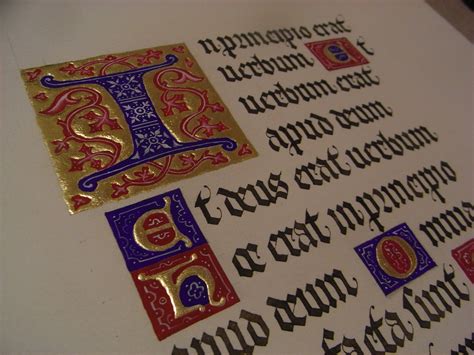 In principio erat
uerbum Et
uerbum erat
apud deum
Et deus erat uerbum
Hoc erat in principio
apud deum Omnia
facta sunt